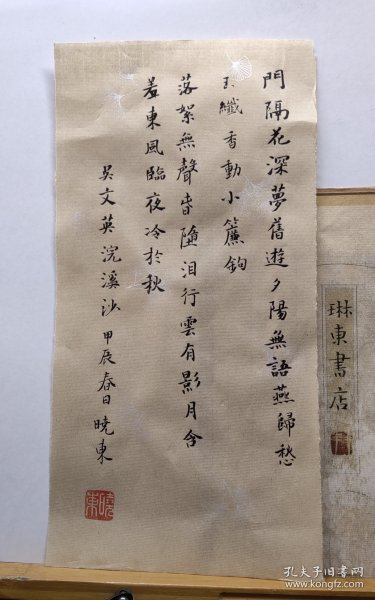 門隔花深夢舊遊夕陽無語燕歸愁
玉纖香動小簾鉤
落絮無聲春隨泪行雲有影月含
羞東風臨夜冷於秋
吳文英浣溪沙 甲辰春日曉東
曉東
琳東書店
孔夫子旧书网